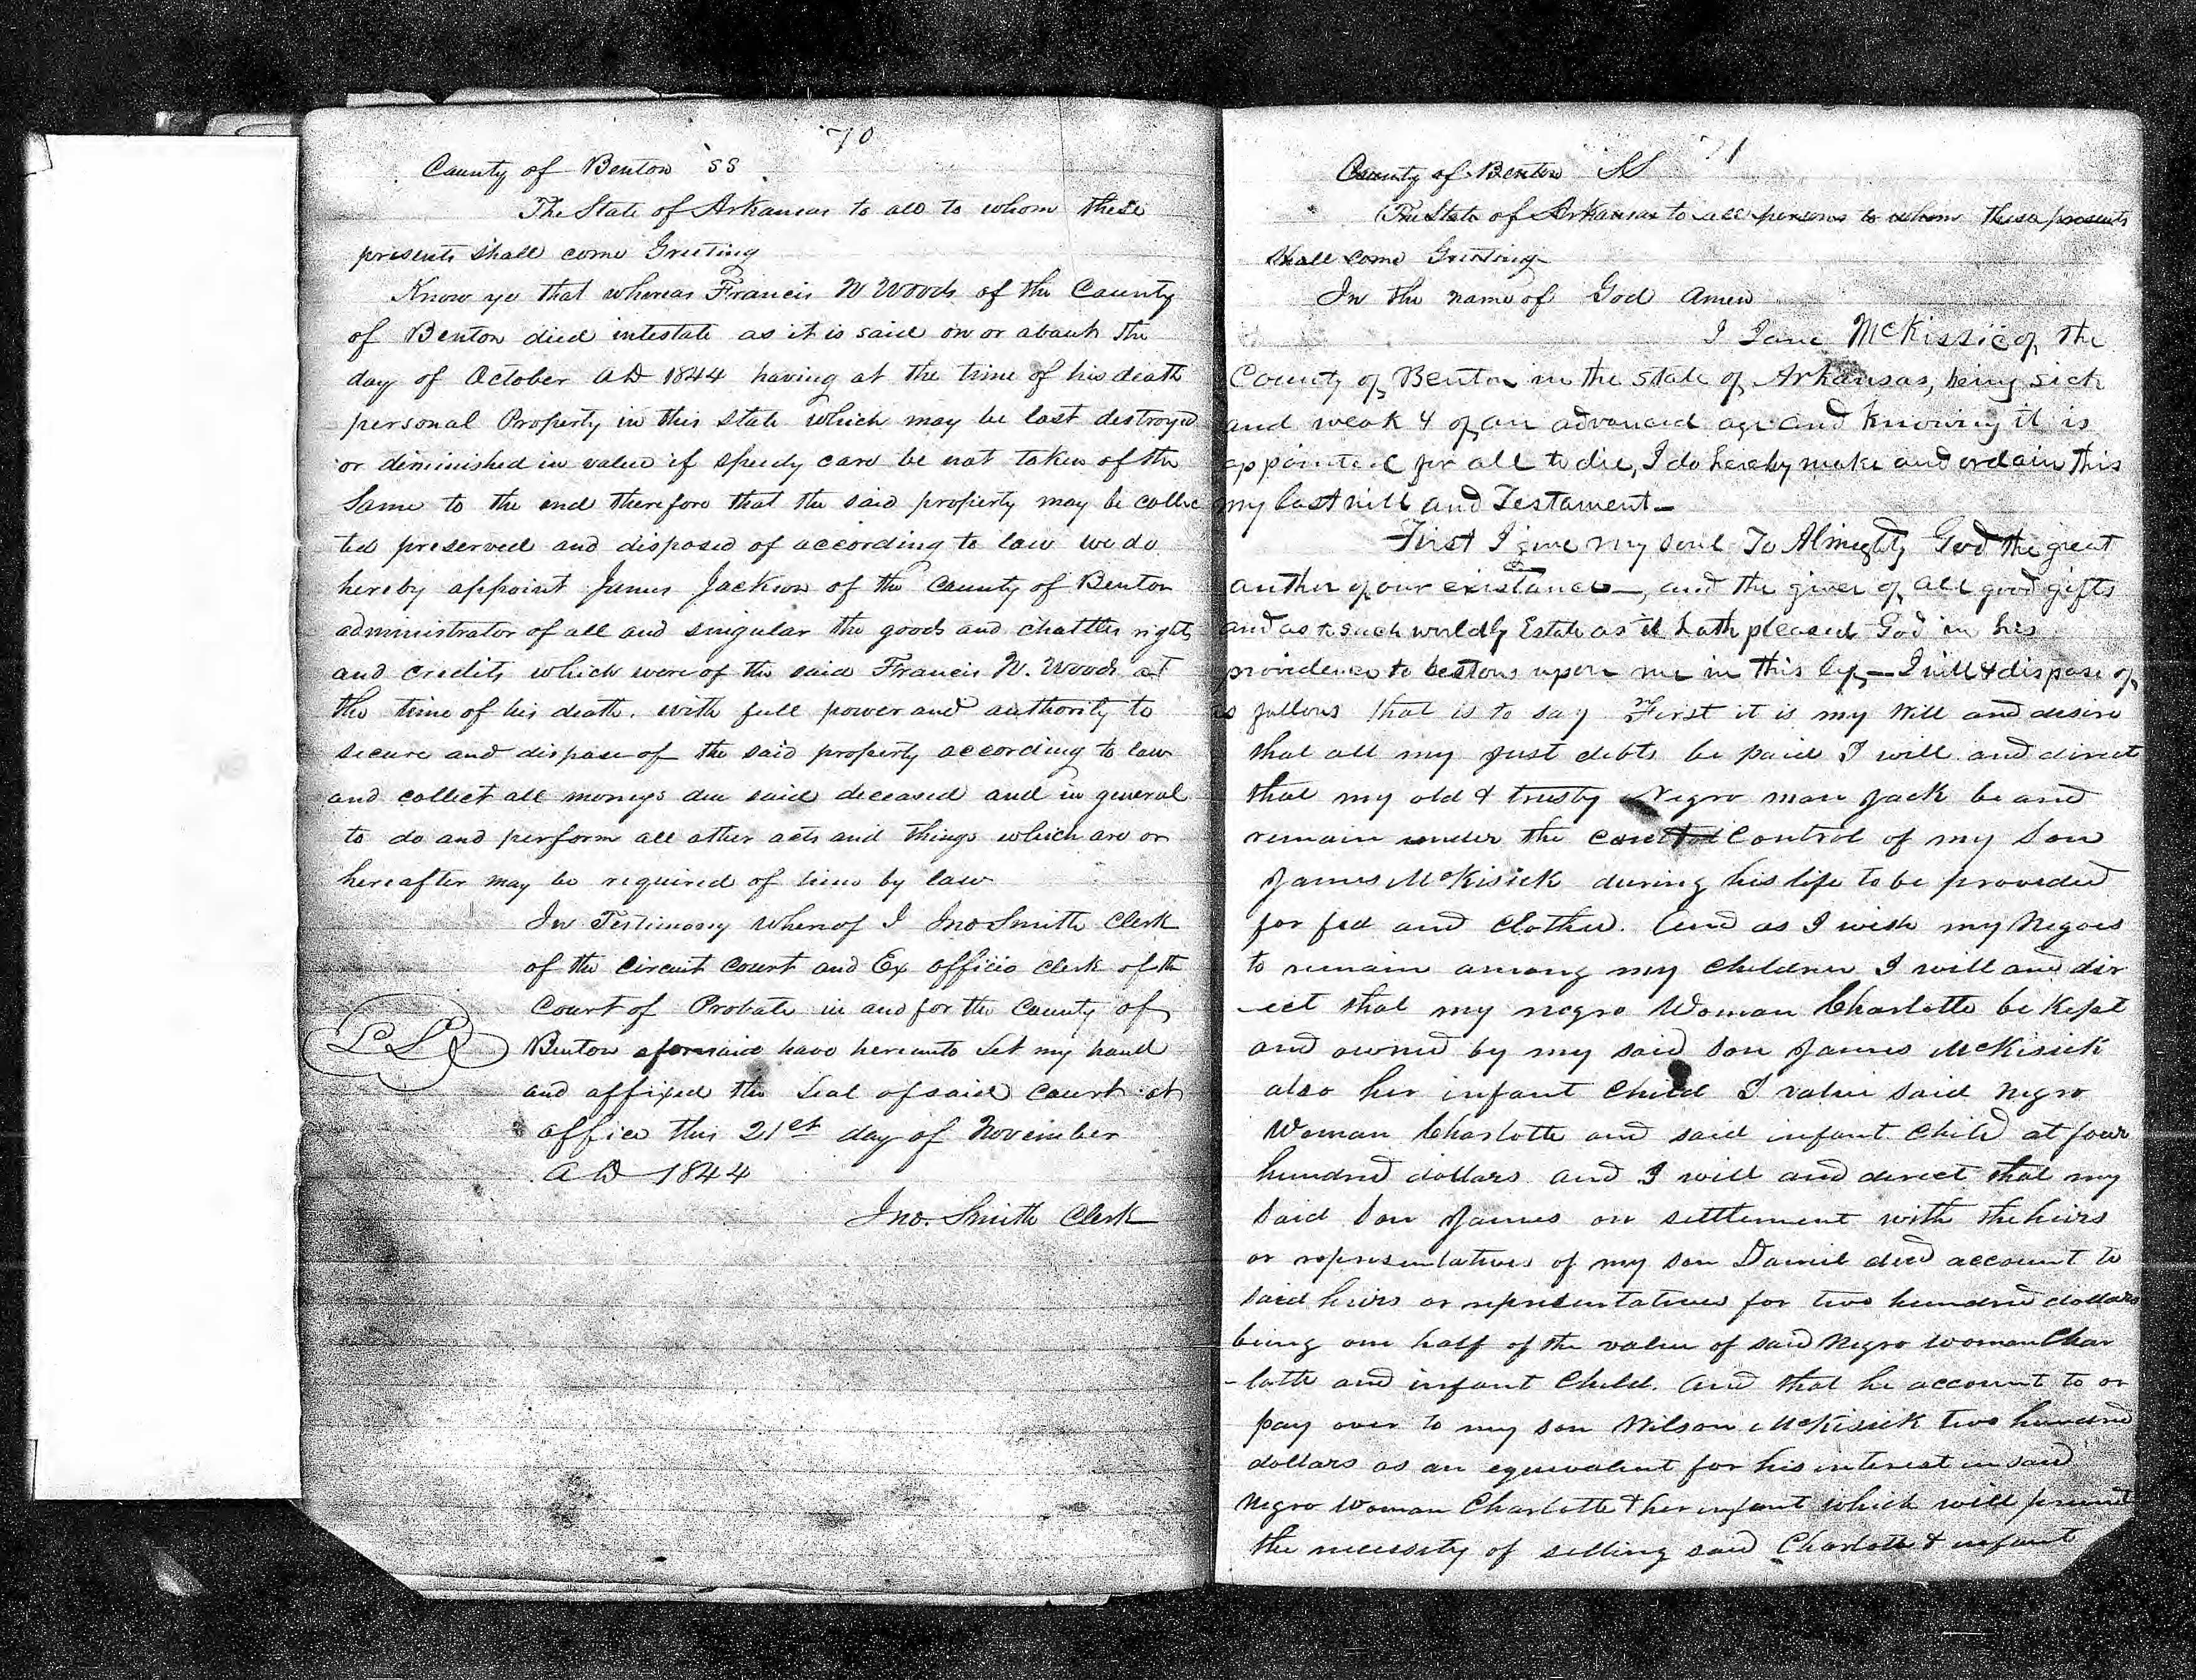 70
County of Benton SS
The State of Arkansas to all to whom these
presents shall come Greeting
Know ye that whereas Francis W Woods of the County
of Benton died intestate as it is said on or about the
day of October AD 1844 having at the time of his death
personal Property in this State which may be lost destroyed
or diminished in value if speedy care be not taken of the
Same to the end therefore that the said property may be collec
ted preserved and disposed of according to law we do
hereby appoint James Jackson of the County of Benton
administrator of all and singular the goods and chattles rights
and credits which were of the said Francis W. Woods at
the time of his death. with full power and authority to
secure and dispose of the said property according to law
and collect all moneys due said deceased and in general
to do and perform all other acts and things which are or
hereafter may be required of him by law
In Testimony whereof I Jno Smith Clerk
of the Circuit Court and Ex officio Clerk of the
Court of Probate in and for the County of
LS Benton aforesaid have hereunto Set my hand
and affixed the Seal of said Court at
office this 21st day of November
AD 1844
Jno. Smith Clerk
71
County of Benton SS
The State of Arkansas to all persons to whom these presents
shall come Greeting
In the name of God Amen
I Jane McKissic of the
County of Benton in the State of Arkansas, being sick
and weak & of an advanced age and knowing it is
appointed for all to die, I do hereby make and ordain this
my last will and Testament—
First I give my soul To Almighty God the great
author of our existance—, and the giver of all good gifts
and as to such worldly Estate as it hath pleased God in his
providence to bestow upon me in this life,— I will & dispose of
as follows that is to say First it is my Will and desire
that all my just debts be paid I will and direct
that my old & trusty Negro man Jack be and
remain under the control of my Son
James McKisick during his life to be provided
for fed and Clothed. And as I wish my Negoes
to remain among my Children I will and dir
-ect that my negro Woman Charlotte be Kept
and owned by my said Son James McKisick
also her infant Child I value said Negro
Woman Charlotte and said infant Child at four
hundred dollars and I will and direct that my
Said Son James on settlement with the heirs
or representatives of my son Daniel decd account to
said heirs or representatives for two hundred dollars
being one half of the value of said Negro woman Char
-lotte and infant Child. And that he account to or
pay over to my son Wilson McKisick two hundred
dollars as an equivalent for his interest in said
Negro Woman Charlotte & her infant which will prevent
the necessity of selling said Charlotte & infant